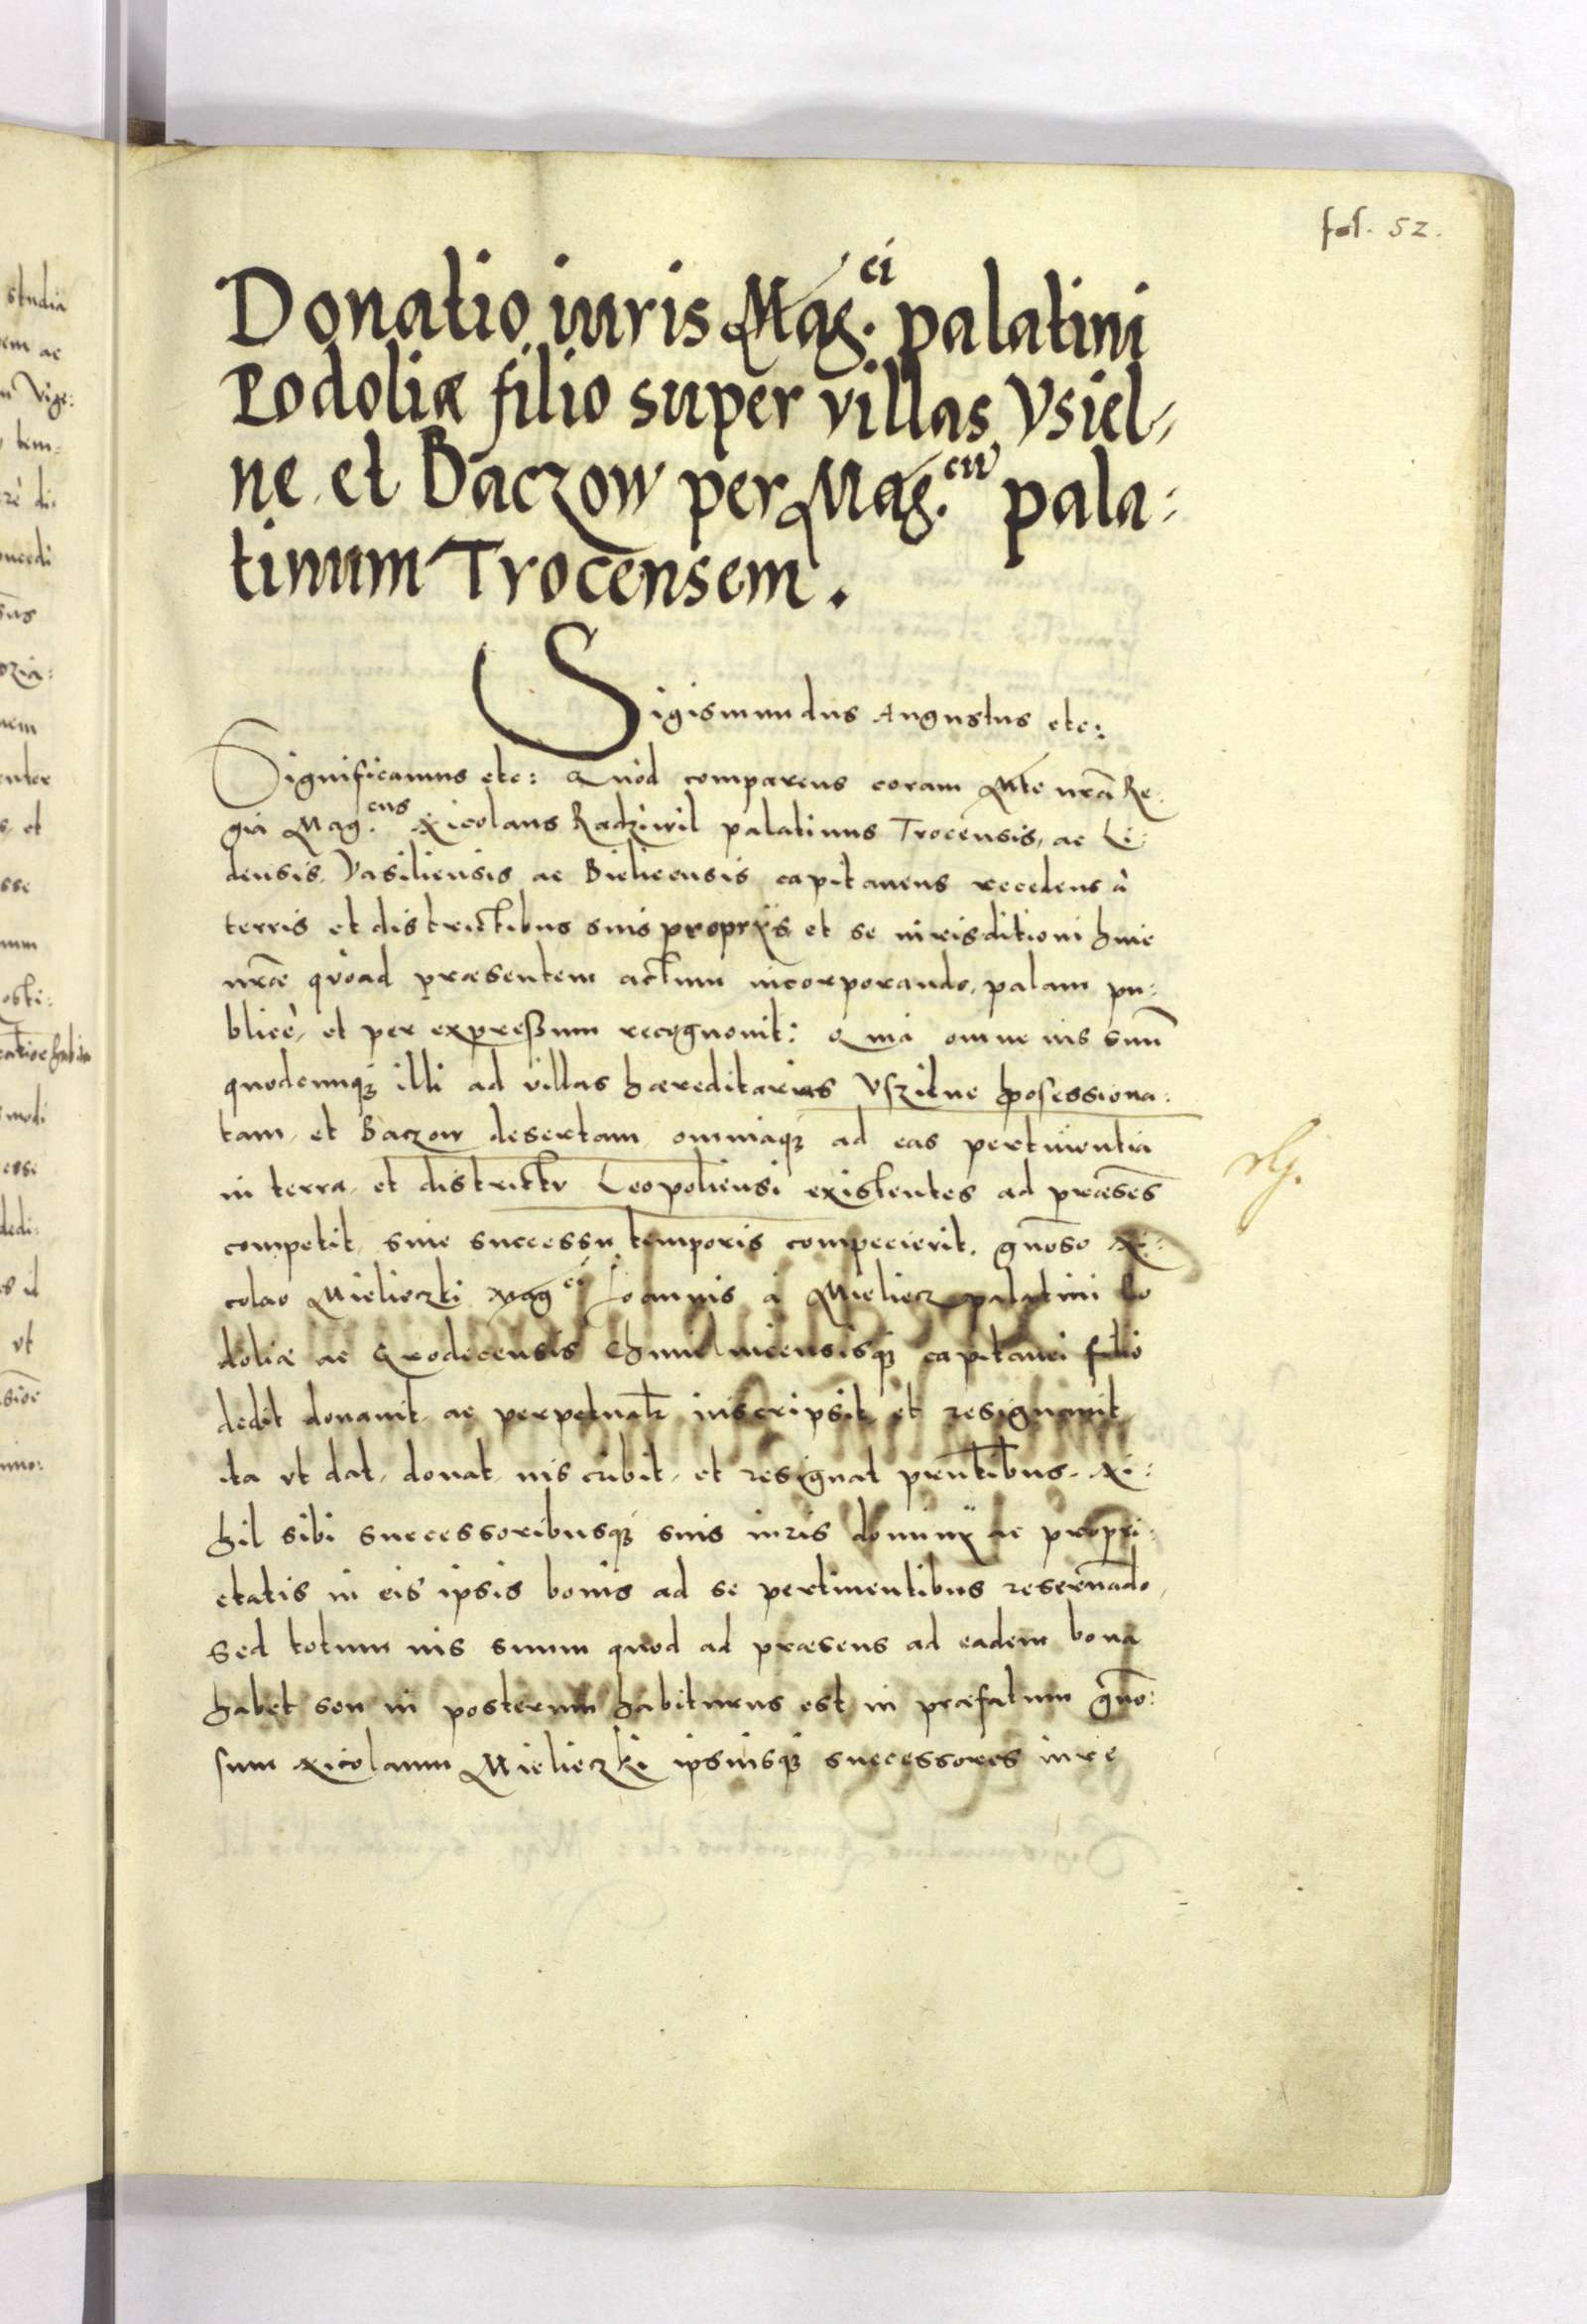 fol. 52.
Donatio iuris Mag.ci palatini
Podoliæ filio super villas Vsiel,
ne et Baczow per Mag.cū pala:
tinum Trocensem.
Sigismundus Augustus etc:
Significamus etc: Quòd comparens coram Mte nrā Re:
gia Mag.cus Nicolaus Radziwil palatinus Trocensis, ac Li:
densis, Vasiliensis ac Bielicensis capitaneus recedens à
terris et districtibus suis proprijs et se iurisditioni huic
nræ quòad præsentem actum incorporando, palam pu:
blicè, et per expreßum recognouit: Quia omne ius suū
quodcunqȝ illi ad villas hæreditarias Vszilne possessiona:
tam, et Baczow desertam, omniaqȝ ad eas pertinentia
in terra, et districtu Leopoliensi existentes ad præsēs
competit, siue successu temporis competierit, gnoso Ni:
colao Mielieczki Mag.ci Ioannis à Mieliecz palatini Po
doliæ ac Grodecensis Chmielnicensisqȝ capitanei filio
dedit donauit, ac perpetuatr inscripsit et resignauit
ita vt dat, donat, inscribit, et resignat prntibus. Ni:
hil sibi successoribusqȝ suis iuris dominij ac propri:
etatis in eis ipsis bonis ad se pertinentibus reseruādo,
Sed totum ius suum quod ad præsens ad eadem bona
habet seu in posterum habiturus est in præfatum gno:
sum Nicolaum Mielieczki ipsiusqȝ successores iure